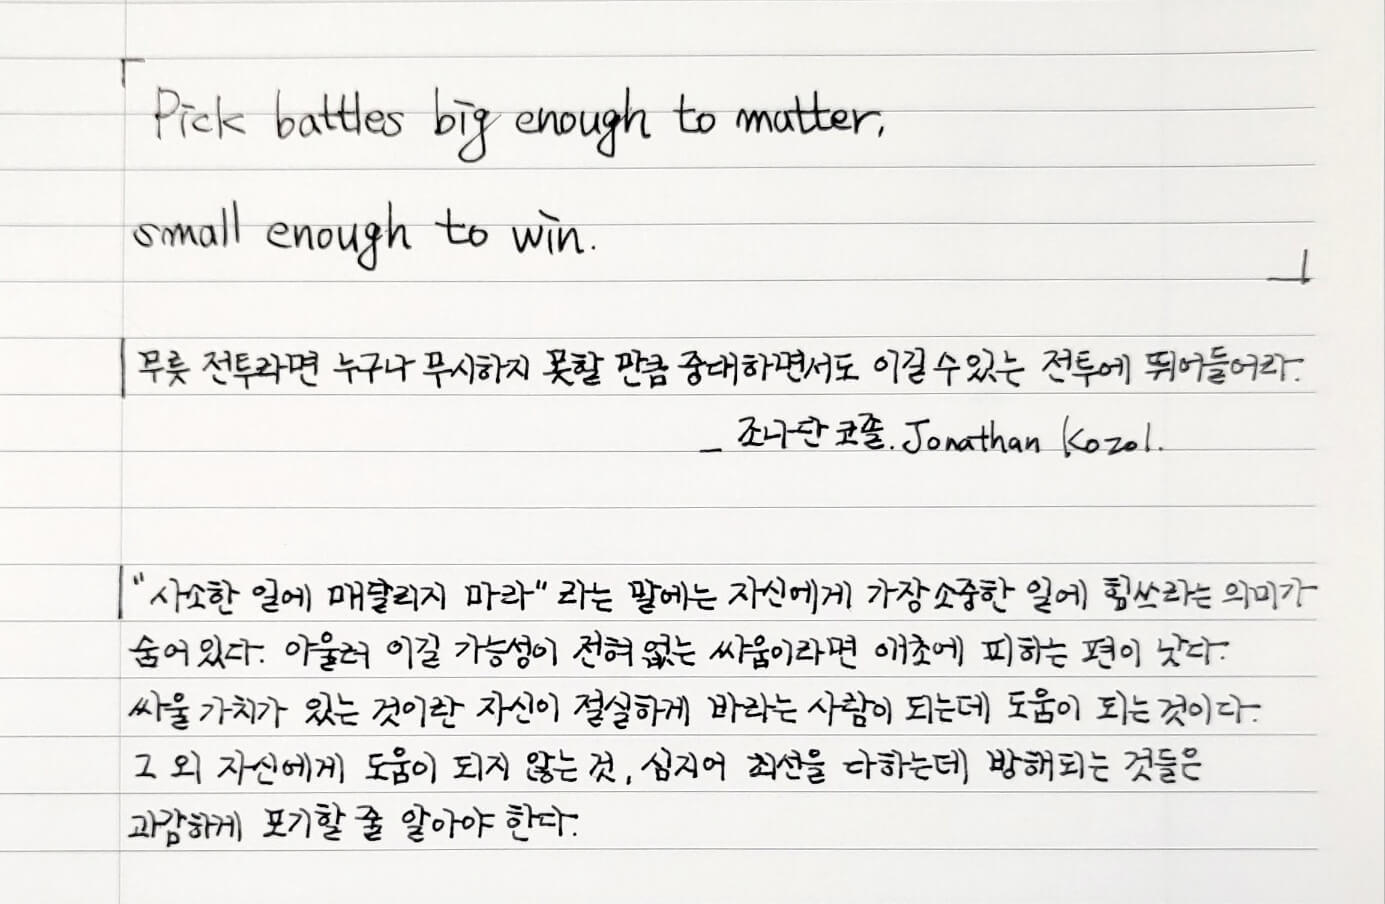 「Pick battles big enough to matter,
small enough to win.」
무릇 전투라면 누구나 무시하지 못할 만큼 중대하면서도 이길 수 있는 전투에 뛰어들어라.
_ 조나단 코졸. Jonathan Kozol.
"사소한 일에 매달리지 마라" 라는 말에는 자신에게 가장 소중한 일에 힘쓰라는 의미가
숨어 있다. 아울러 이길 가능성이 전혀 없는 싸움이라면 애초에 피하는 편이 낫다.
싸울 가치가 있는 것이란 자신이 절실하게 바라는 사람이 되는데 도움이 되는 것이다.
그 외 자신에게 도움이 되지 않는 것, 심지어 최선을 다하는데 방해되는 것들은
과감하게 포기할 줄 알아야 한다.